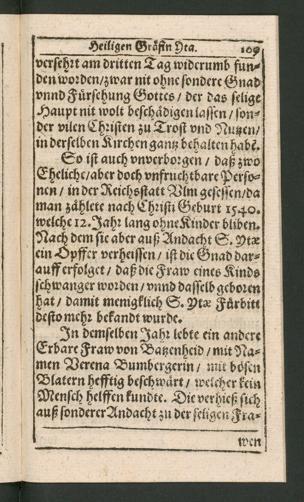 Heiligen Gräfin Yta. 109
versehrt am dritten Tag widerumb fun-
den worden/zwar nit ohne sondere Gnad
vnnd Fürsehung Gottes / der das selige
Haupt nit wolt beschädigen lassen / son-
der vilen Christen zu Trost vnd Nutzen/
in derselben Kirchen gantz behalten habē.
So ist auch vnverborgen / daß zwo
Eheliche/aber doch vnfruchtbare Perso-
nen / in der Reichsstatt Vlm gesessen/da
man zählete nach Christi Geburt 1540.
welche 12. Jahr lang ohne Kinder bliben.
Nach dem sie aber auß Andacht S. Ytæ
ein Opffer verheissen / ist die Gnad dar-
auff erfolget / daß die Fraw eines Kinds
schwanger worden / vnnd dasselb geboren
hat / damit menigklich S. Ytæ Fürbitt
desto mehr bekandt wurde.
In demselben Jahr lebte ein andere
Erbare Fraw von Batzenheid / mit Na-
men Verena Bumbergerin / mit bösen
Blatern hefftig beschwärt / welcher kein
Mensch helffen kundte. Die verhieß sich
auß sonderer Andacht zu der seligen Fra-
wen